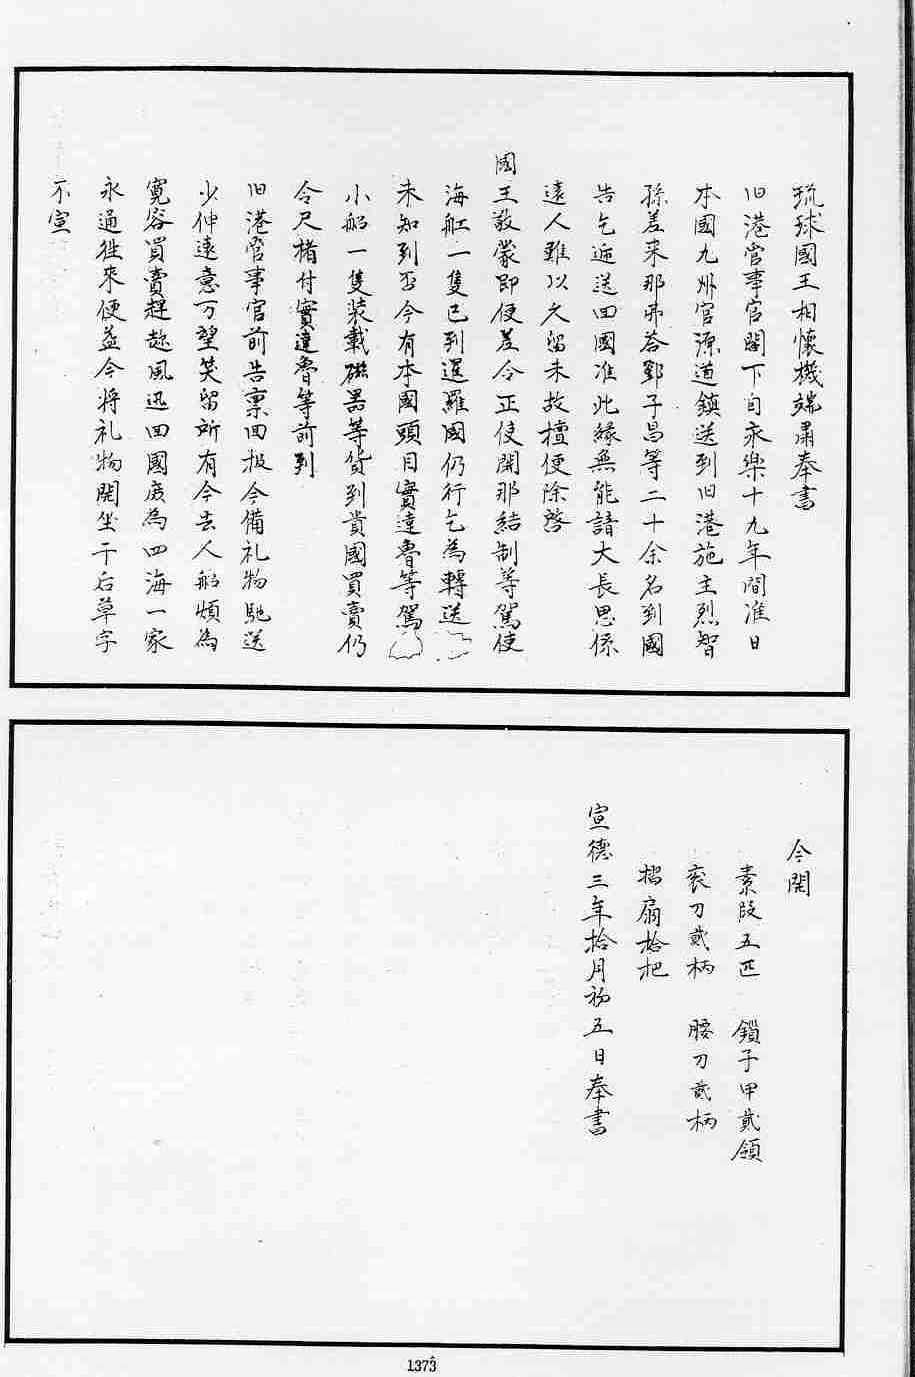 琉球國王相懷機端肅奉書
旧港管事官閣下自永樂十九年間准日
本國九州官源道鎮送到旧港施主烈智
孫差來那弗荅鄧子昌等二十余名到國
告乞逓送回國准此緣無能諳大長思係
遠人雖以久留未故檀便除啓
國王敎蒙即便差令正使闍那結制等駕使
海舡一隻已到暹羅國仍行乞為轉送
未知到否今有本國頭目實達魯等駕
小船一隻装載磁器等貨到貴國買賣仍
令尺楮付實達魯等前到
旧港管事官前告禀回报今備礼物馳送
少伸遠意万望笑留所有今去人船煩為
寛容買賣趕趂風迅回國庻為四海一家
永通徃來便益今将礼物開坐于后草字
不宣
今開
素段五匹 鎖子甲貳領
衮刀貳柄 腰刀貳柄
摺扇拾把
宣德三年拾月初五日奉書
1373